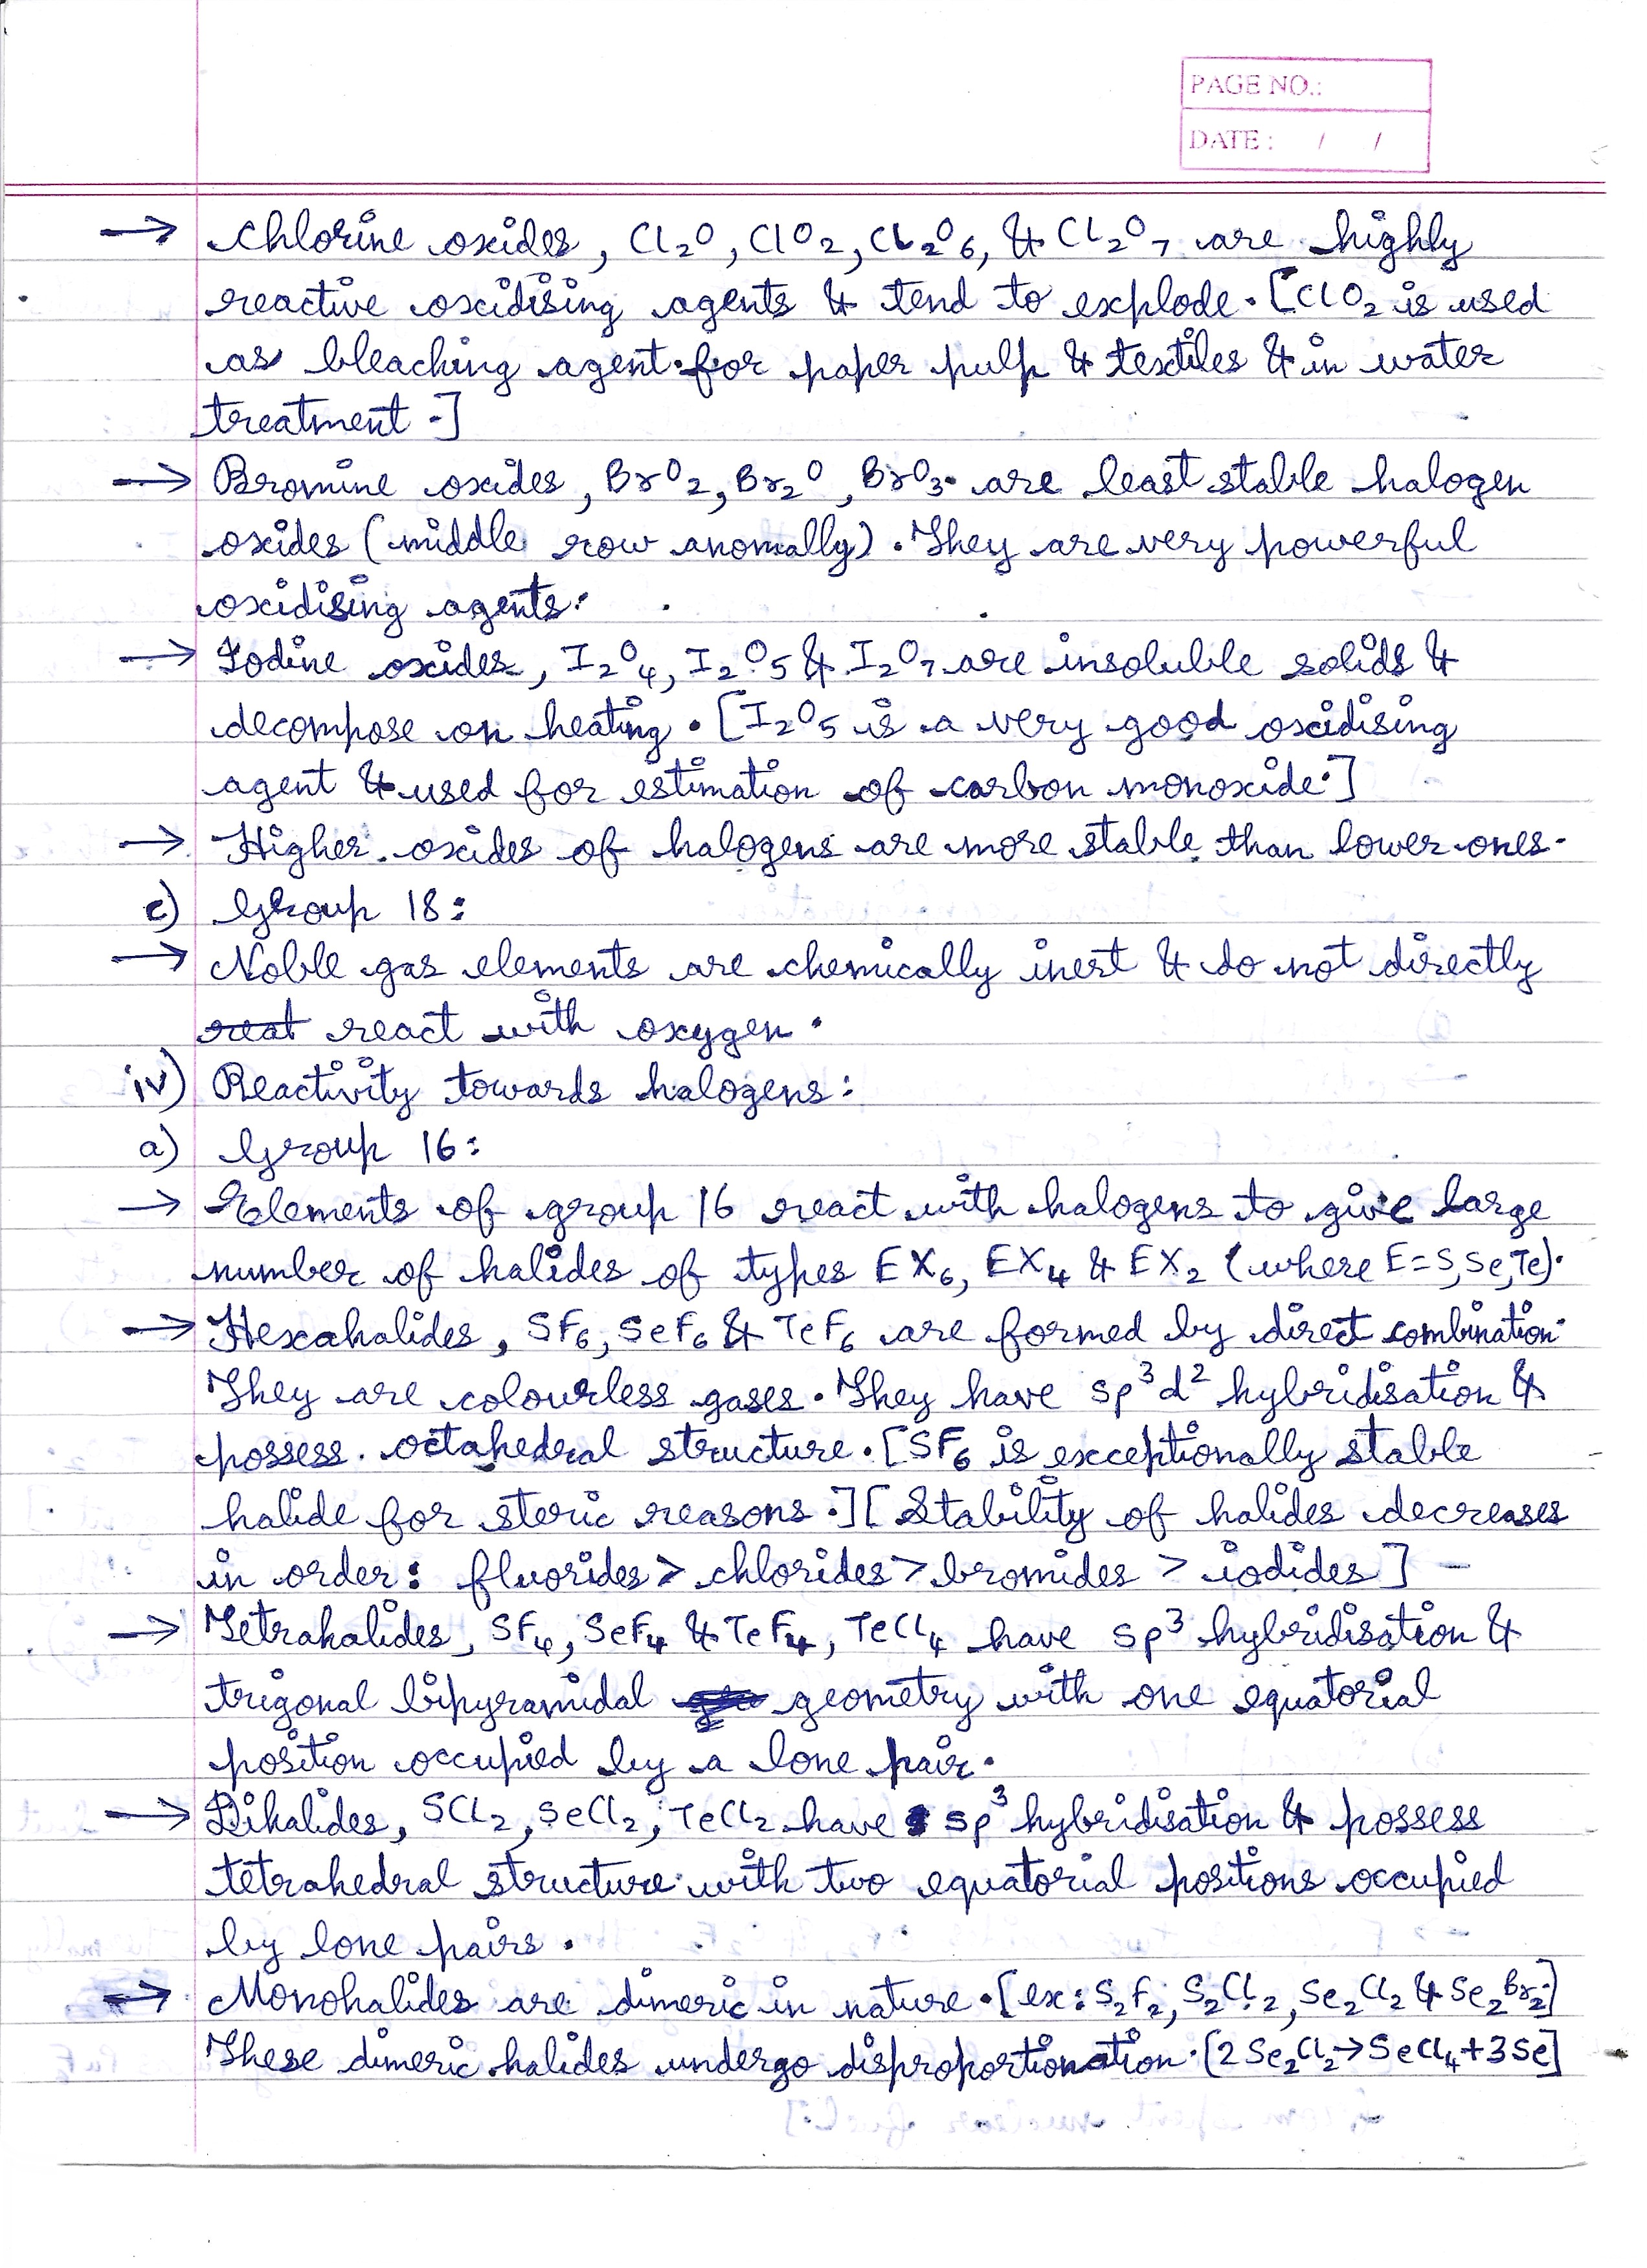 PAGE NO.:
DATE : / /
→ Chlorine oxides, Cl₂O, ClO₂, Cl₂O₆, & Cl₂O₇ are highly
reactive oxidising agents & tend to explode. [ClO₂ is used
as bleaching agent for paper pulp & textiles & in water
treatment.]
→ Bromine oxides, BrO₂, Br₂O, BrO₃ are least stable halogen
oxides (middle row anomally). They are very powerful
oxidising agents.
→ Iodine oxides, I₂O₄, I₂O₅ & I₂O₇ are insoluble solids &
decompose on heating. [I₂O₅ is a very good oxidising
agent & used for estimation of carbon monoxide.]
→ Higher oxides of halogens are more stable than lower ones.
c) Group 18:
→ Noble gas elements are chemically inert & do not directly
reat react with oxygen.
iv) Reactivity towards halogens:
a) Group 16:
→ Elements of group 16 react with halogens to give large
number of halides of types EX₆, EX₄ & EX₂ (where E=S,Se,Te).
→ Hexahalides, SF₆, SeF₆ & TeF₆ are formed by direct combination.
They are colourless gases. They have sp³d² hybridisation &
possess octahedral structure. [SF₆ is exceptionally stable
halide for steric reasons.] [Stability of halides decreases
in order: fluorides > chlorides > bromides > iodides]
→ Tetrahalides, SF₄, SeF₄ & TeF₄, TeCl₄ have sp³ hybridisation &
trigonal bipyramidal geometry with one equatorial
position occupied by a lone pair.
→ Dihalides, SCl₂, SeCl₂, TeCl₂ have sp³ hybridisation & possess
tetrahedral structure with two equatorial positions occupied
by lone pairs.
→ Monohalides are dimeric in nature. [ex: S₂F₂, S₂Cl₂, Se₂Cl₂ & Se₂Br₂.]
These dimeric halides undergo disproportionation. [2Se₂Cl₂→SeCl₄+3Se]